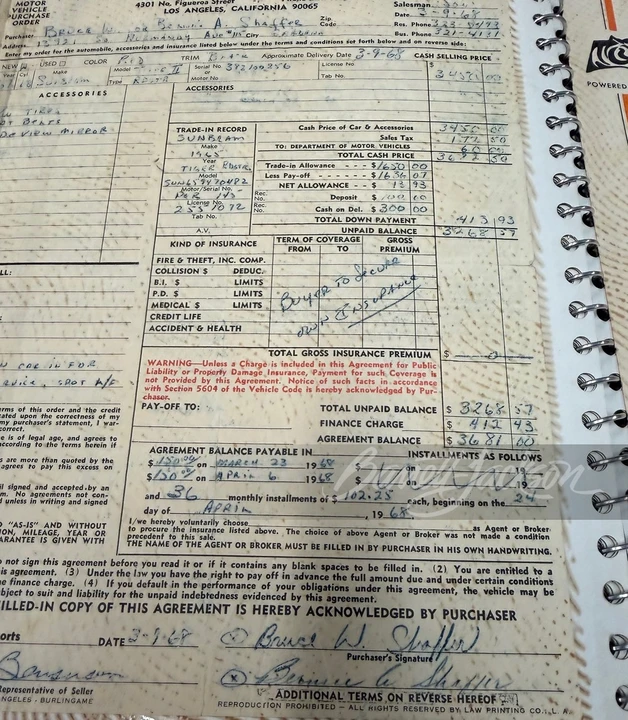 MOTOR
VEHICLE
PURCHASE
ORDER
4301 No. Figueroa Street
LOS ANGELES, CALIFORNIA 90065
Salesman
Date 3-9-68
Zip Code
Res. Phone
Bus. Phone 321-4131
Purchaser Bruce W. Shaffer
Address
Enter my order for the automobile, accessories and insurance listed below under the terms and conditions set forth below and on reverse side:
NEW USED COLOR RED TRIM BLACK Approximate Delivery Date 3-9-68 CASH SELLING PRICE
Year Cyl. Make Model Serial No. or Motor No. License No. Tab No.
ACCESSORIES
ACCESSORIES
VIEW MIRROR
TRADE-IN RECORD
SUNBEAM
Make
1965
Year
TIGER
Model
Motor/Serial No.
License No.
Tab No.
A.V.
Cash Price of Car & Accessories
Sales Tax
TO: DEPARTMENT OF MOTOR VEHICLES
TOTAL CASH PRICE
Trade-in Allowance $1650 00
Less Pay-off $1636 07
NET ALLOWANCE $13 93
Rec. No. Deposit $100 00
Rec. No. Cash on Del. $300 00
TOTAL DOWN PAYMENT 413 93
UNPAID BALANCE 3268 57
KIND OF INSURANCE TERM OF COVERAGE GROSS PREMIUM
FROM TO
FIRE & THEFT, INC. COMP.
COLLISION $ DEDUC.
B.I. $ LIMITS
P.D. $ LIMITS
MEDICAL $ LIMITS
CREDIT LIFE
ACCIDENT & HEALTH
BUYER TO SECURE
OWN INSURANCE
TOTAL GROSS INSURANCE PREMIUM $ 0
WARNING—Unless a Charge is included in this Agreement for Public
Liability or Property Damage Insurance, Payment for such Coverage is
not Provided by this Agreement. Notice of such facts in accordance
with Section 5604 of the Vehicle Code is hereby acknowledged by Pur-
chaser.
PAY-OFF TO:
TOTAL UNPAID BALANCE $ 3268 57
FINANCE CHARGE $ 412 43
AGREEMENT BALANCE $ 3681 00
AGREEMENT BALANCE PAYABLE IN INSTALLMENTS AS FOLLOWS
$150.00 on MARCH 23 1968 $ on 19
$150.00 on APRIL 6 1968 $ on 19
and 36 monthly installments of $102.25 each, beginning on the 24
day of APRIL, 1968
I/we hereby voluntarily choose as Agent or Broker
to procure the insurance listed above. The choice of above Agent or Broker was not made a condition
precedent to this sale.
THE NAME OF THE AGENT OR BROKER MUST BE FILLED IN BY PURCHASER IN HIS OWN HANDWRITING.
rms of this order and the credit
my purchaser's statement, I war-
is of legal age, and agrees to
according to the terms herein if
s are more than quoted by the
agrees to pay this excess on
il signed and accepted by an
m. No agreements not con-
d unless in writing and signed
D "AS-IS" AND WITHOUT
ION, MILEAGE, YEAR OR
ARANTEE IS GIVEN WITH
o not sign this agreement before you read it or if it contains any blank spaces to be filled in. (2) You are entitled to a
is agreement. (3) Under the law you have the right to pay off in advance the full amount due and under certain conditions
e finance charge. (4) If you default in the performance of your obligations under this agreement, the vehicle may be
bject to suit and liability for the unpaid indebtedness evidenced by this agreement.
ILLED-IN COPY OF THIS AGREEMENT IS HEREBY ACKNOWLEDGED BY PURCHASER
orts DATE 3-9-68 Bruce W. Shaffer
Purchaser's Signature
Shaffer
epresentative of Seller
NGELES - BURLINGAME
ADDITIONAL TERMS ON REVERSE HEREOF
REPRODUCTION PROHIBITED — ALL RIGHTS RESERVED BY LAW PRINTING CO., L. A.
POWERED
Barrett-Jackson